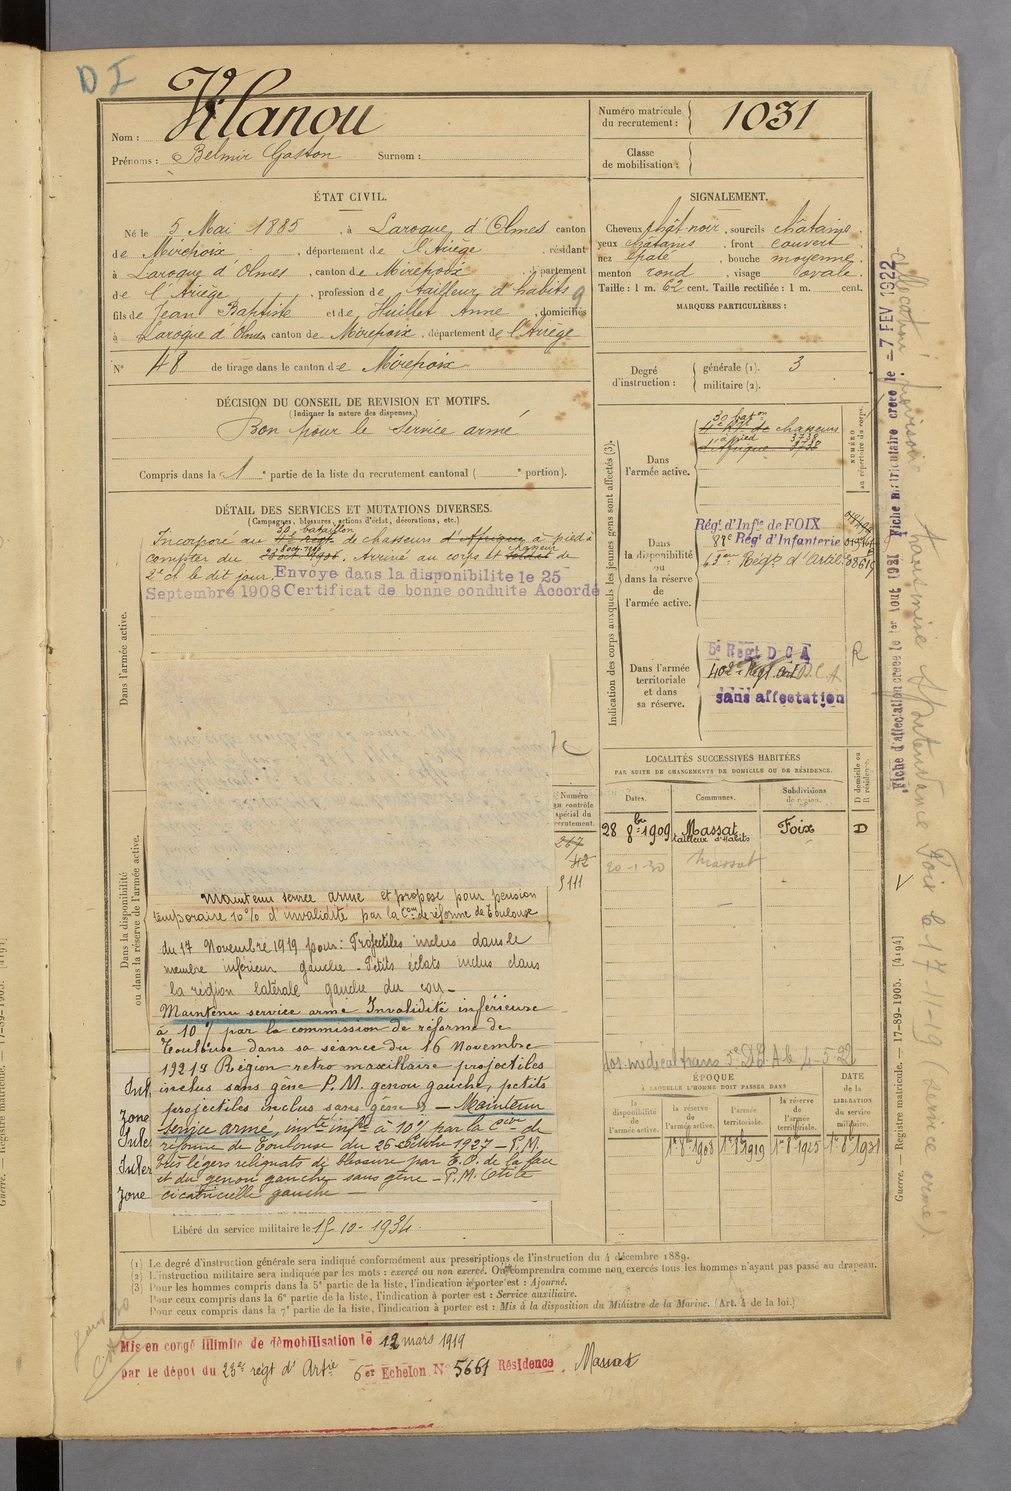 D I
Nom : Vilanou
Prénoms : Belmir Gaston Surnom :
Numéro matricule du recrutement : 1031
Classe de mobilisation :
ÉTAT CIVIL.
Né le 5 Mai 1885, à Laroque d'Olmes canton
de Mirepoix, département de l'Ariège résidant
à Laroque d'Olmes, canton de Mirepoix, département
de l'Ariège, profession de tailleur d'habits 9
fils de Jean Baptiste et de Huillet Anne, domiciliés
à Laroque d'Olmes canton de Mirepoix, département de l'Ariège
N° 48 de tirage dans le canton de Mirepoix
SIGNALEMENT.
Cheveux chât noir, sourcils châtains
yeux châtains, front couvert.
nez épaté, bouche moyenne.
menton rond, visage ovale.
Taille : 1 m. 62 cent. Taille rectifiée : 1 m. cent.
MARQUES PARTICULIÈRES :
Degré d'instruction : générale (1). 3
militaire (2).
DÉCISION DU CONSEIL DE REVISION ET MOTIFS.
(Indiquer la nature des dispenses.)
Bon pour le service armé
Compris dans la 1e partie de la liste du recrutement cantonal ( e portion).
DÉTAIL DES SERVICES ET MUTATIONS DIVERSES.
(Campagnes, blessures, actions d'éclat, décorations, etc.)
30 bataillon
Incorporé au de chasseurs d'Afrique à pied à
compter du 1906. Arrivé au corps et chasseur de
2e cl le dit jour. Envoye dans la disponibilite le 25
Septembre 1908 Certificat de bonne conduite Accordé
Dans l'armée active.
Dans la disponibilité ou dans la réserve de l'armée active.
Indication des corps auxquels les jeunes gens sont affectés (3).
NUMÉRO au répertoire du corps.
Dans l'armée active.
30 baton
chasseurs
à pied 3738
d'Afrique
Dans la disponibilité ou dans la réserve de l'armée active.
Régt d'Infie de FOIX
88e Régt d'Infanterie
Régt d'Artil
Dans l'armée territoriale et dans sa réserve.
5e Régt D C A
402e Régt Art D.C.A
sans affectation
R
LOCALITÉS SUCCESSIVES HABITÉES
PAR SUITE DE CHANGEMENTS DE DOMICILE OU DE RÉSIDENCE.
D domicile ou R résidence.
Dates. Communes. Subdivisions de région.
28 8bre 1909 Massat Foix D
tailleur d'habits
20-1-30 Massat
Numéro au contrôle spécial du recrutement.
267
42
5111
Maintenu service armé et proposé pour pension
temporaire 10% d'invalidité par la Com de réforme de Toulouse
du 17 Novembre 1919 pour : Projectiles inclus dans le
membre inférieur gauche - Petits éclats inclus dans
la région latérale gauche du cou -
Maintenu service armé Invalidité inférieure
à 10% par la commission de réforme de
Toulouse dans sa séance du 16 Novembre
1921 Région retro maxillaire projectiles
inclus sans gêne P.M. genou gauche, petits
projectiles inclus sans gêne - Maintenu
service armé, invté infre à 10% par la Cion de
réforme de Toulouse du 26 1927 - P.M.
très légers reliquats de blessure par E.O. de la face
et du genou gauche sans gêne - P.M. Otite
cicatricielle gauche -
zone
zone
Libéré du service militaire le 15-10-1934.
ÉPOQUE
À LAQUELLE L'HOMME DOIT PASSER DANS
la disponibilité de l'armée active. la réserve de l'armée active. l'armée territoriale. la réserve de l'armée territoriale. DATE de la LIBÉRATION du service militaire.
1er 8bre 1908 1er 8bre 1919 1er 8bre 1925 1er 8bre 1931
(1) Le degré d'instruction générale sera indiqué conformément aux prescriptions de l'instruction du 4 décembre 1889.
(2) L'instruction militaire sera indiquée par les mots : exercé ou non exercé. On comprendra comme non exercés tous les hommes n'ayant pas passé au drapeau.
(3) Pour les hommes compris dans la 5e partie de la liste, l'indication à porter est : Ajourné.
Pour ceux compris dans la 6e partie de la liste, l'indication à porter est : Service auxiliaire.
Pour ceux compris dans la 7e partie de la liste, l'indication à porter est : Mis à la disposition du Ministre de la Marine. (Art. 4 de la loi.)
Mis en congé illimité de démobilisation le 12 mars 1919
par le dépot du 23e régt d'Artie 6er Echelon N° 5661 Résidence. Massat
Fiche d'affectation créée le 1er Aout 1921 Fiche matriculaire créée le - 7 FEV 1922
Allocation provisoire transmise Intendance Foix le 17-11-19 (service armé)
Guerre. — Registre matricule. — 17-89-1905. [4194]